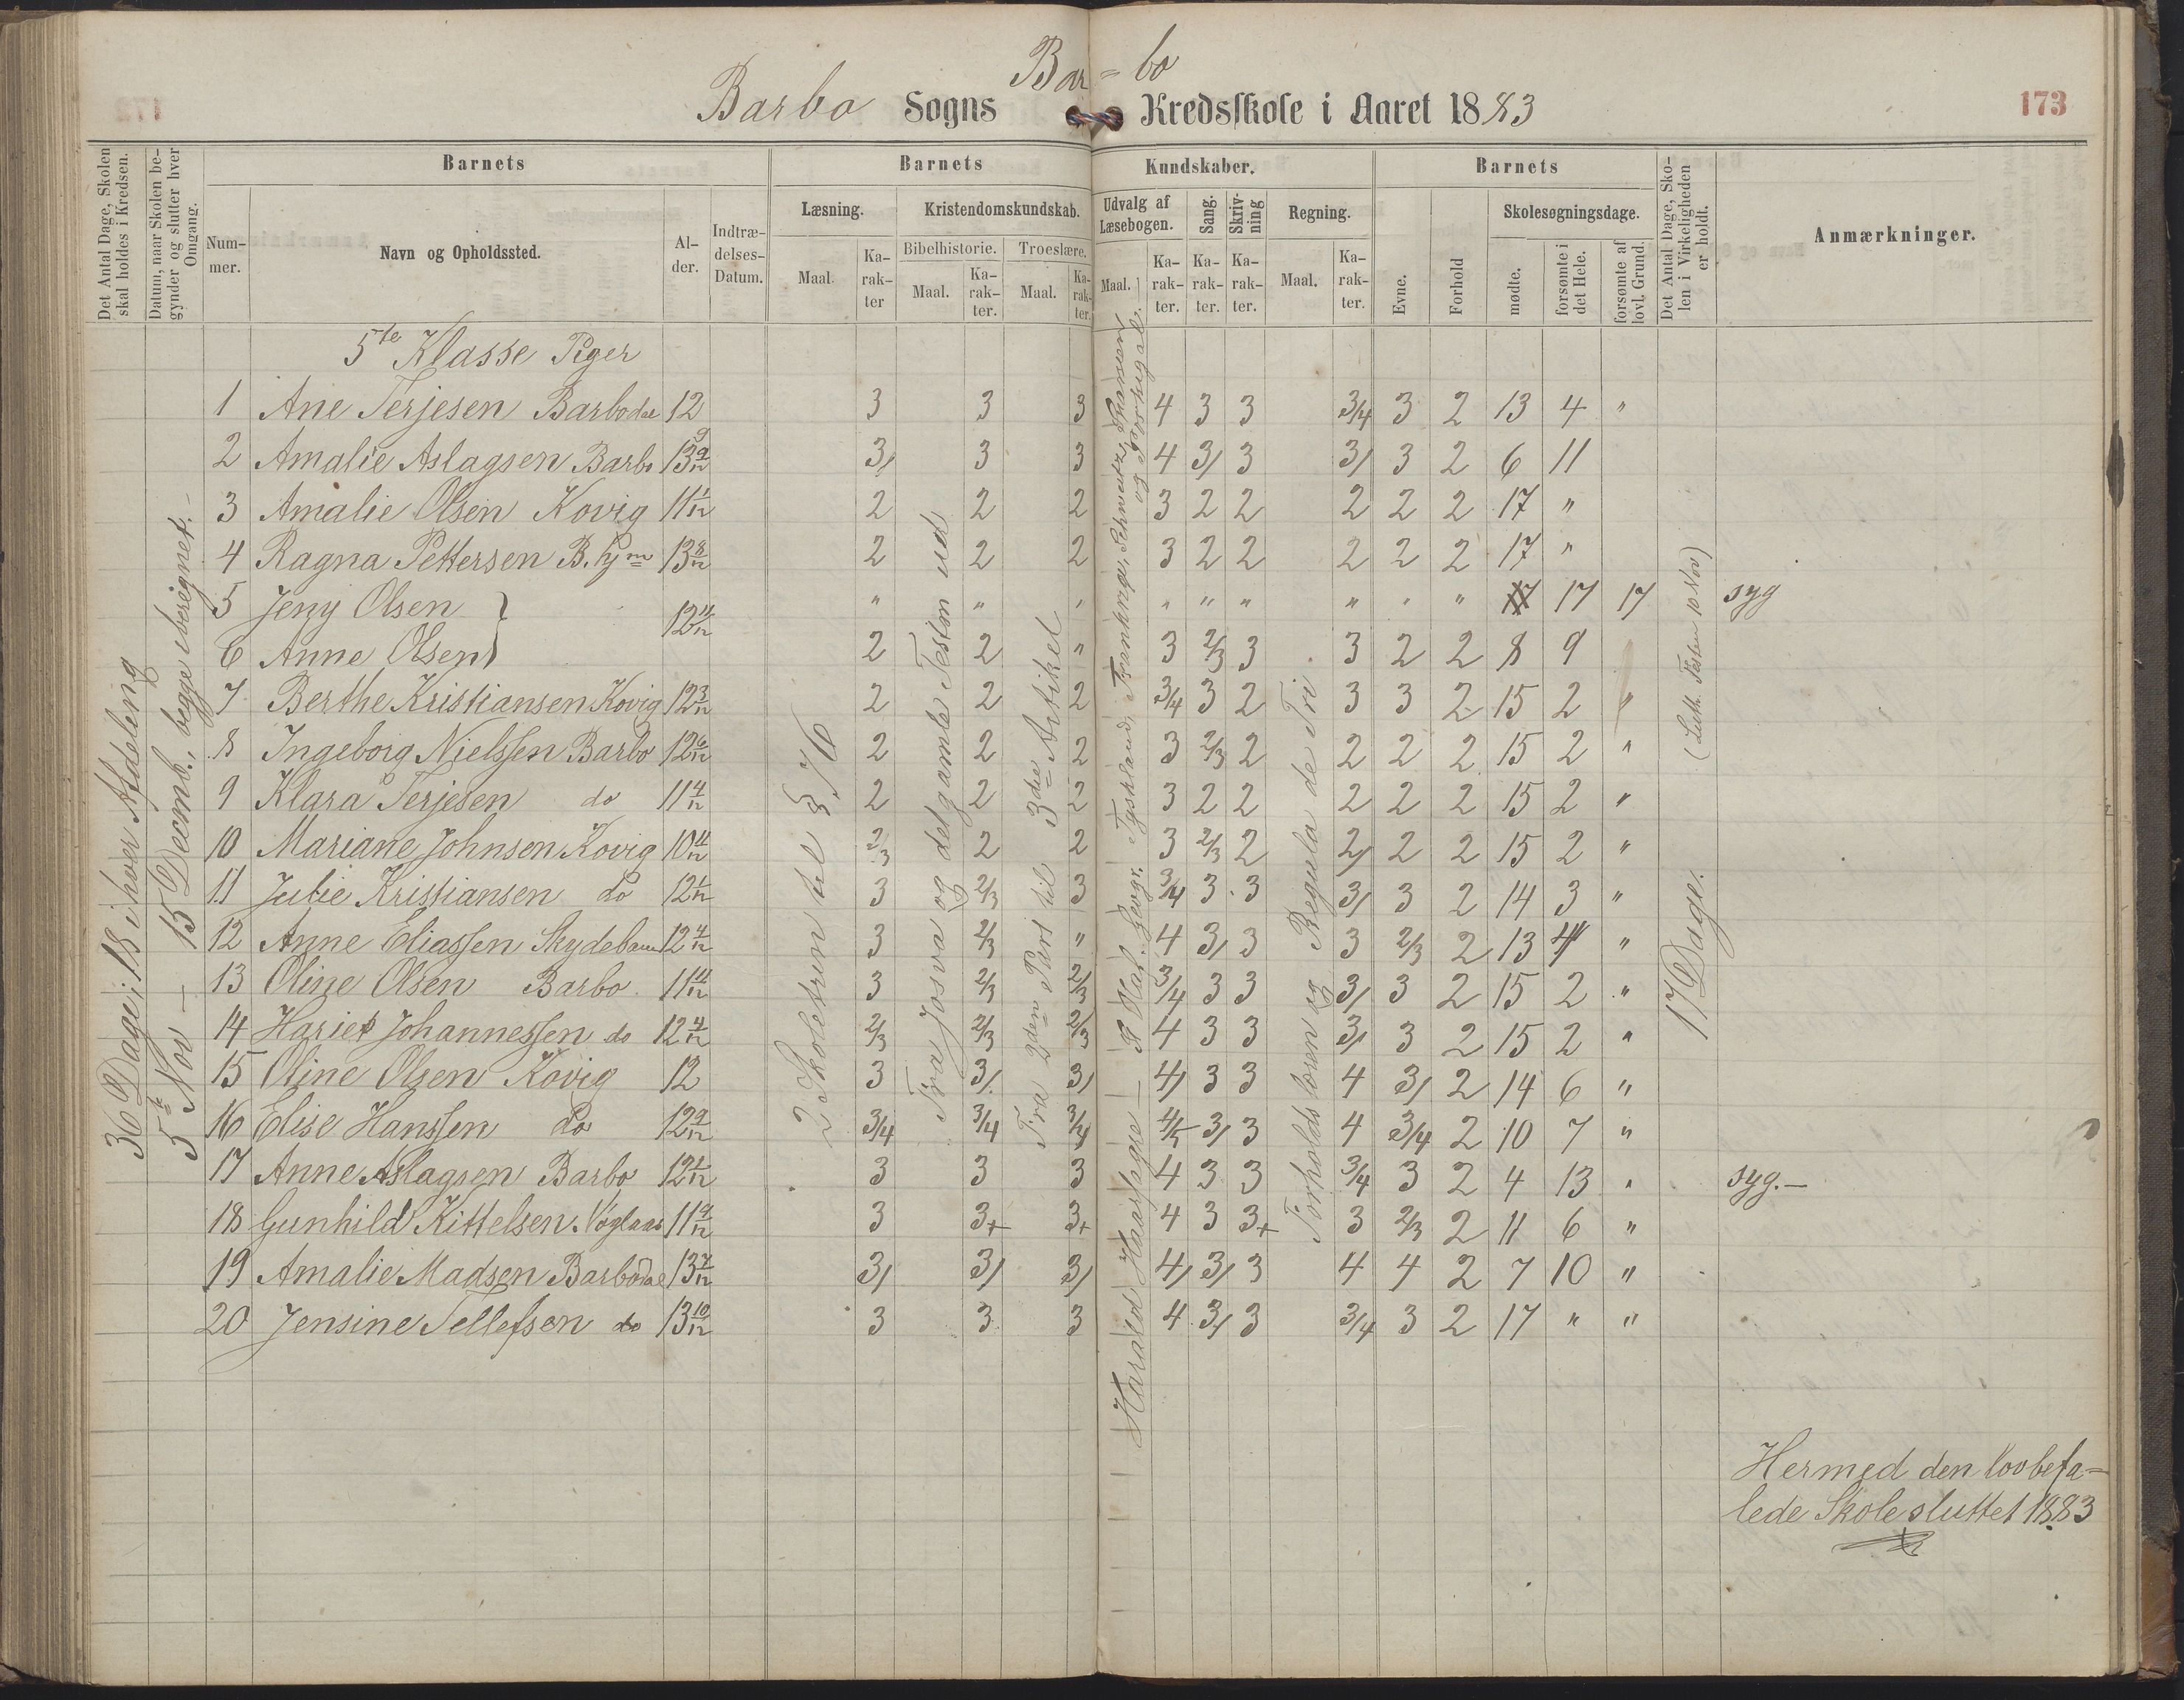 Bar = bo
Barbo Sogns Kredsskole i Aaret 1883
173
Det Antal Dage, Skolen skal holdes i Kredsen.
Datum, naar Skolen begynder og slutter hver Omgang.
Barnets
Nummer.
Navn og Opholdssted.
Alder.
Indtrædelses-Datum.
Barnets Kundskaber.
Læsning.
Maal.
Karakter
Kristendomskundskab.
Bibelhistorie.
Maal.
Karakter.
Troeslære.
Maal.
Karakter.
Udvalg af Læsebogen.
Maal.
Karakter.
Sang.
Karakter.
Skrivning
Karakter.
Regning.
Maal.
Karakter.
Barnets
Evne.
Forhold
Skolesøgningsdage.
mødte.
forsømte i det Hele.
forsømte af lovl. Grund.
Det Antal Dage, Skolen i Virkeligheden er holdt.
Anmærkninger.
36 Dage; 18 i hver Afdeling
5te Nov – 15 Decmb., begge iberegnet. –
2 Skoletrin til § 76
Fra Josva og det gamle Testm ud
Fra 2den Part til 3die Artikel
Harald Haarfagre – St Hal. Geogr. Tyskland, Frankrige, Schweitz, Spanien og Portugal.
Forholdslæren og Regula de Tri
17 Dage. (Luth. Festen 10 Nov)
5te Klasse Piger
1 Ane Terjesen Barbodal 12 3 3 3 4 3 3 3/4 3 2 13 4 "
2 Amalie Aslagsen Barbo 13 9/12 3/ 3 3 4 3/ 3 3/ 3 2 6 11
3 Amalie Olsen Kovig 11 1/12 2 2 2 3 2 2 2 2 2 17 "
4 Ragna Pettersen B. 13 8/12 2 2 2 3 2 2 2 2 2 17 "
5 Jeny Olsen " " " " " " " " " 17 17 syg
6 Anne Olsen 12 11/12 2 2 " 3 2/3 3 3 2 2 8 9
7 Berthe Kristiansen Kovig 12 3/12 2 2 2 3/4 3 2 3 3 2 15 2 "
8 Ingeborg Nielssen Barbo 12 6/12 2 2 2 3 2/3 2 2 2 2 15 2 "
9 Klara Terjesen do 11 4/12 2 2 2 3 2 2 2 2 2 15 2 "
10 Mariane Johnsen Kovig 10 11/12 2/3 2 2 3 2/3 2 2/ 2 2 15 2 "
11 Julie Kristiansen do 12 1/12 3 2/3 3 3/4 3 3 3/ 3 2 14 3 "
12 Anne Eliassen 12 4/12 3 2/3 " 4 3/ 3 3 2/3 2 13 4 "
13 Oline Olsen Barbo 11 11/12 3 2/3 2/3 3/4 3 3 3/ 3 2 15 2 "
14 Hariet Johannessen do 12 4/12 2/3 2/3 2/3 4 3 3 3/ 3 2 15 2 "
15 Oline Olsen Kovig 12 3 3/ 3/ 4/ 3 3 4 3/ 2 14 6 "
16 Elise Hanssen do 12 9/12 3/4 3/4 3/4 4/5 3/ 3 4 3/4 2 10 7 "
17 Anne Aslagsen Barbo 12 1/12 3 3 3 4 3 3 3/4 3 2 4 13 " syg. –
18 Gunhild Kittelsen 11 9/12 3 3+ 3+ 4 3 3+ 3 2/3 2 11 6 "
19 Amalie Madsen Barbodal 13 7/12 3/ 3/ 3/ 4/ 3/ 3 4 4 2 7 10 "
20 Jensine Tellefsen do 13 10/12 3 3 3 4 3/ 3 3/4 3 2 17 " "
Hermed den lovbefa=
lede Skole sluttet 1883